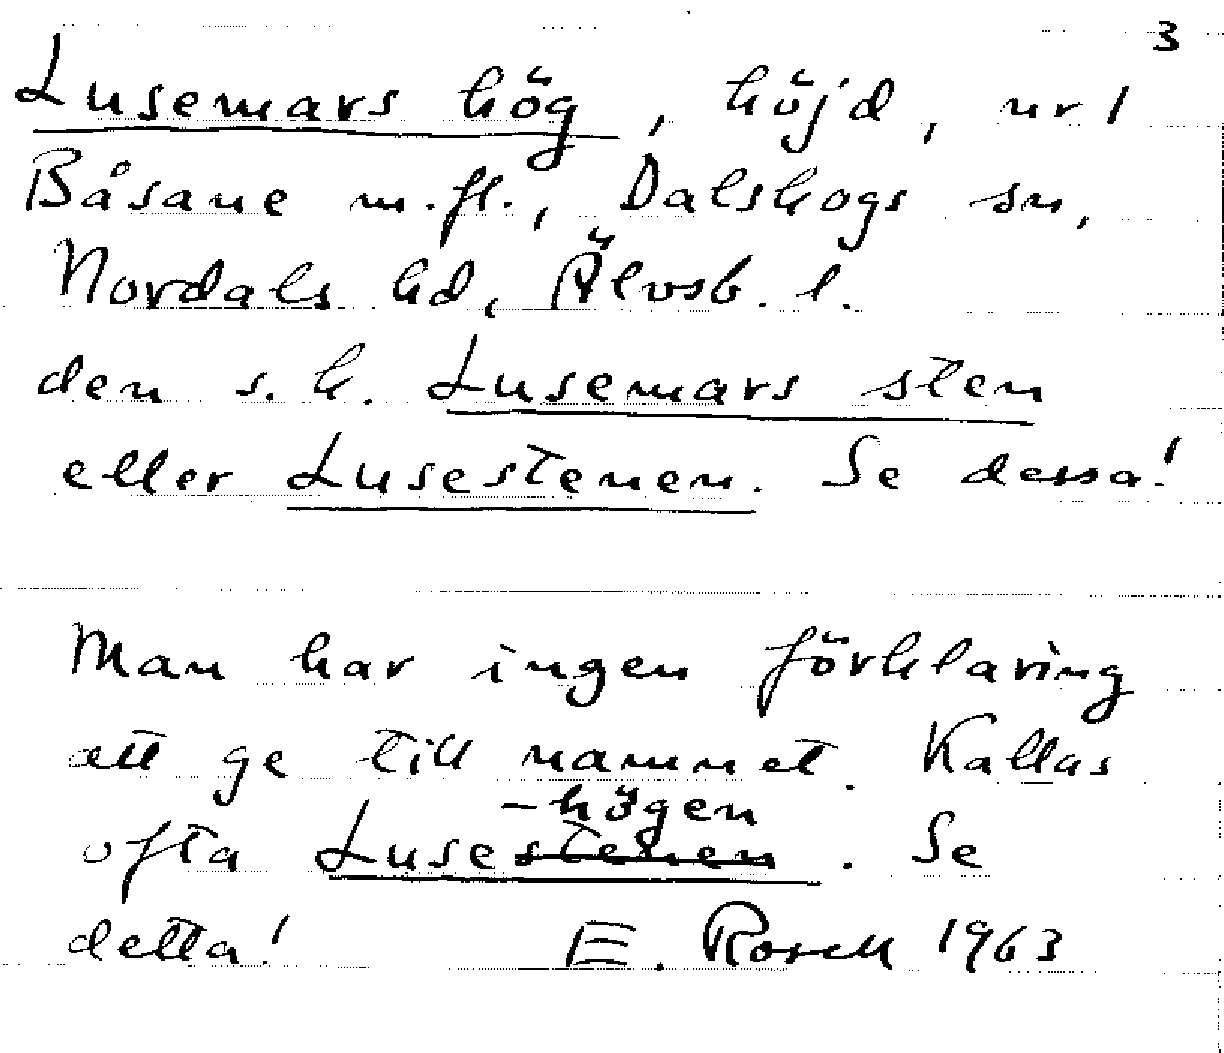 3
Lusemars hög, höjd, nr 1
Båsane m.fl., Dalskogs sn,
Nordals hd, Älvsb. l.
den s.k. Lusemars sten
eller Lusestenen. Se dessa!
Man har ingen förklaring
att ge till namnet. Kallas
-högen
ofta Lusestenen. Se
detta! E. Rosell 1963